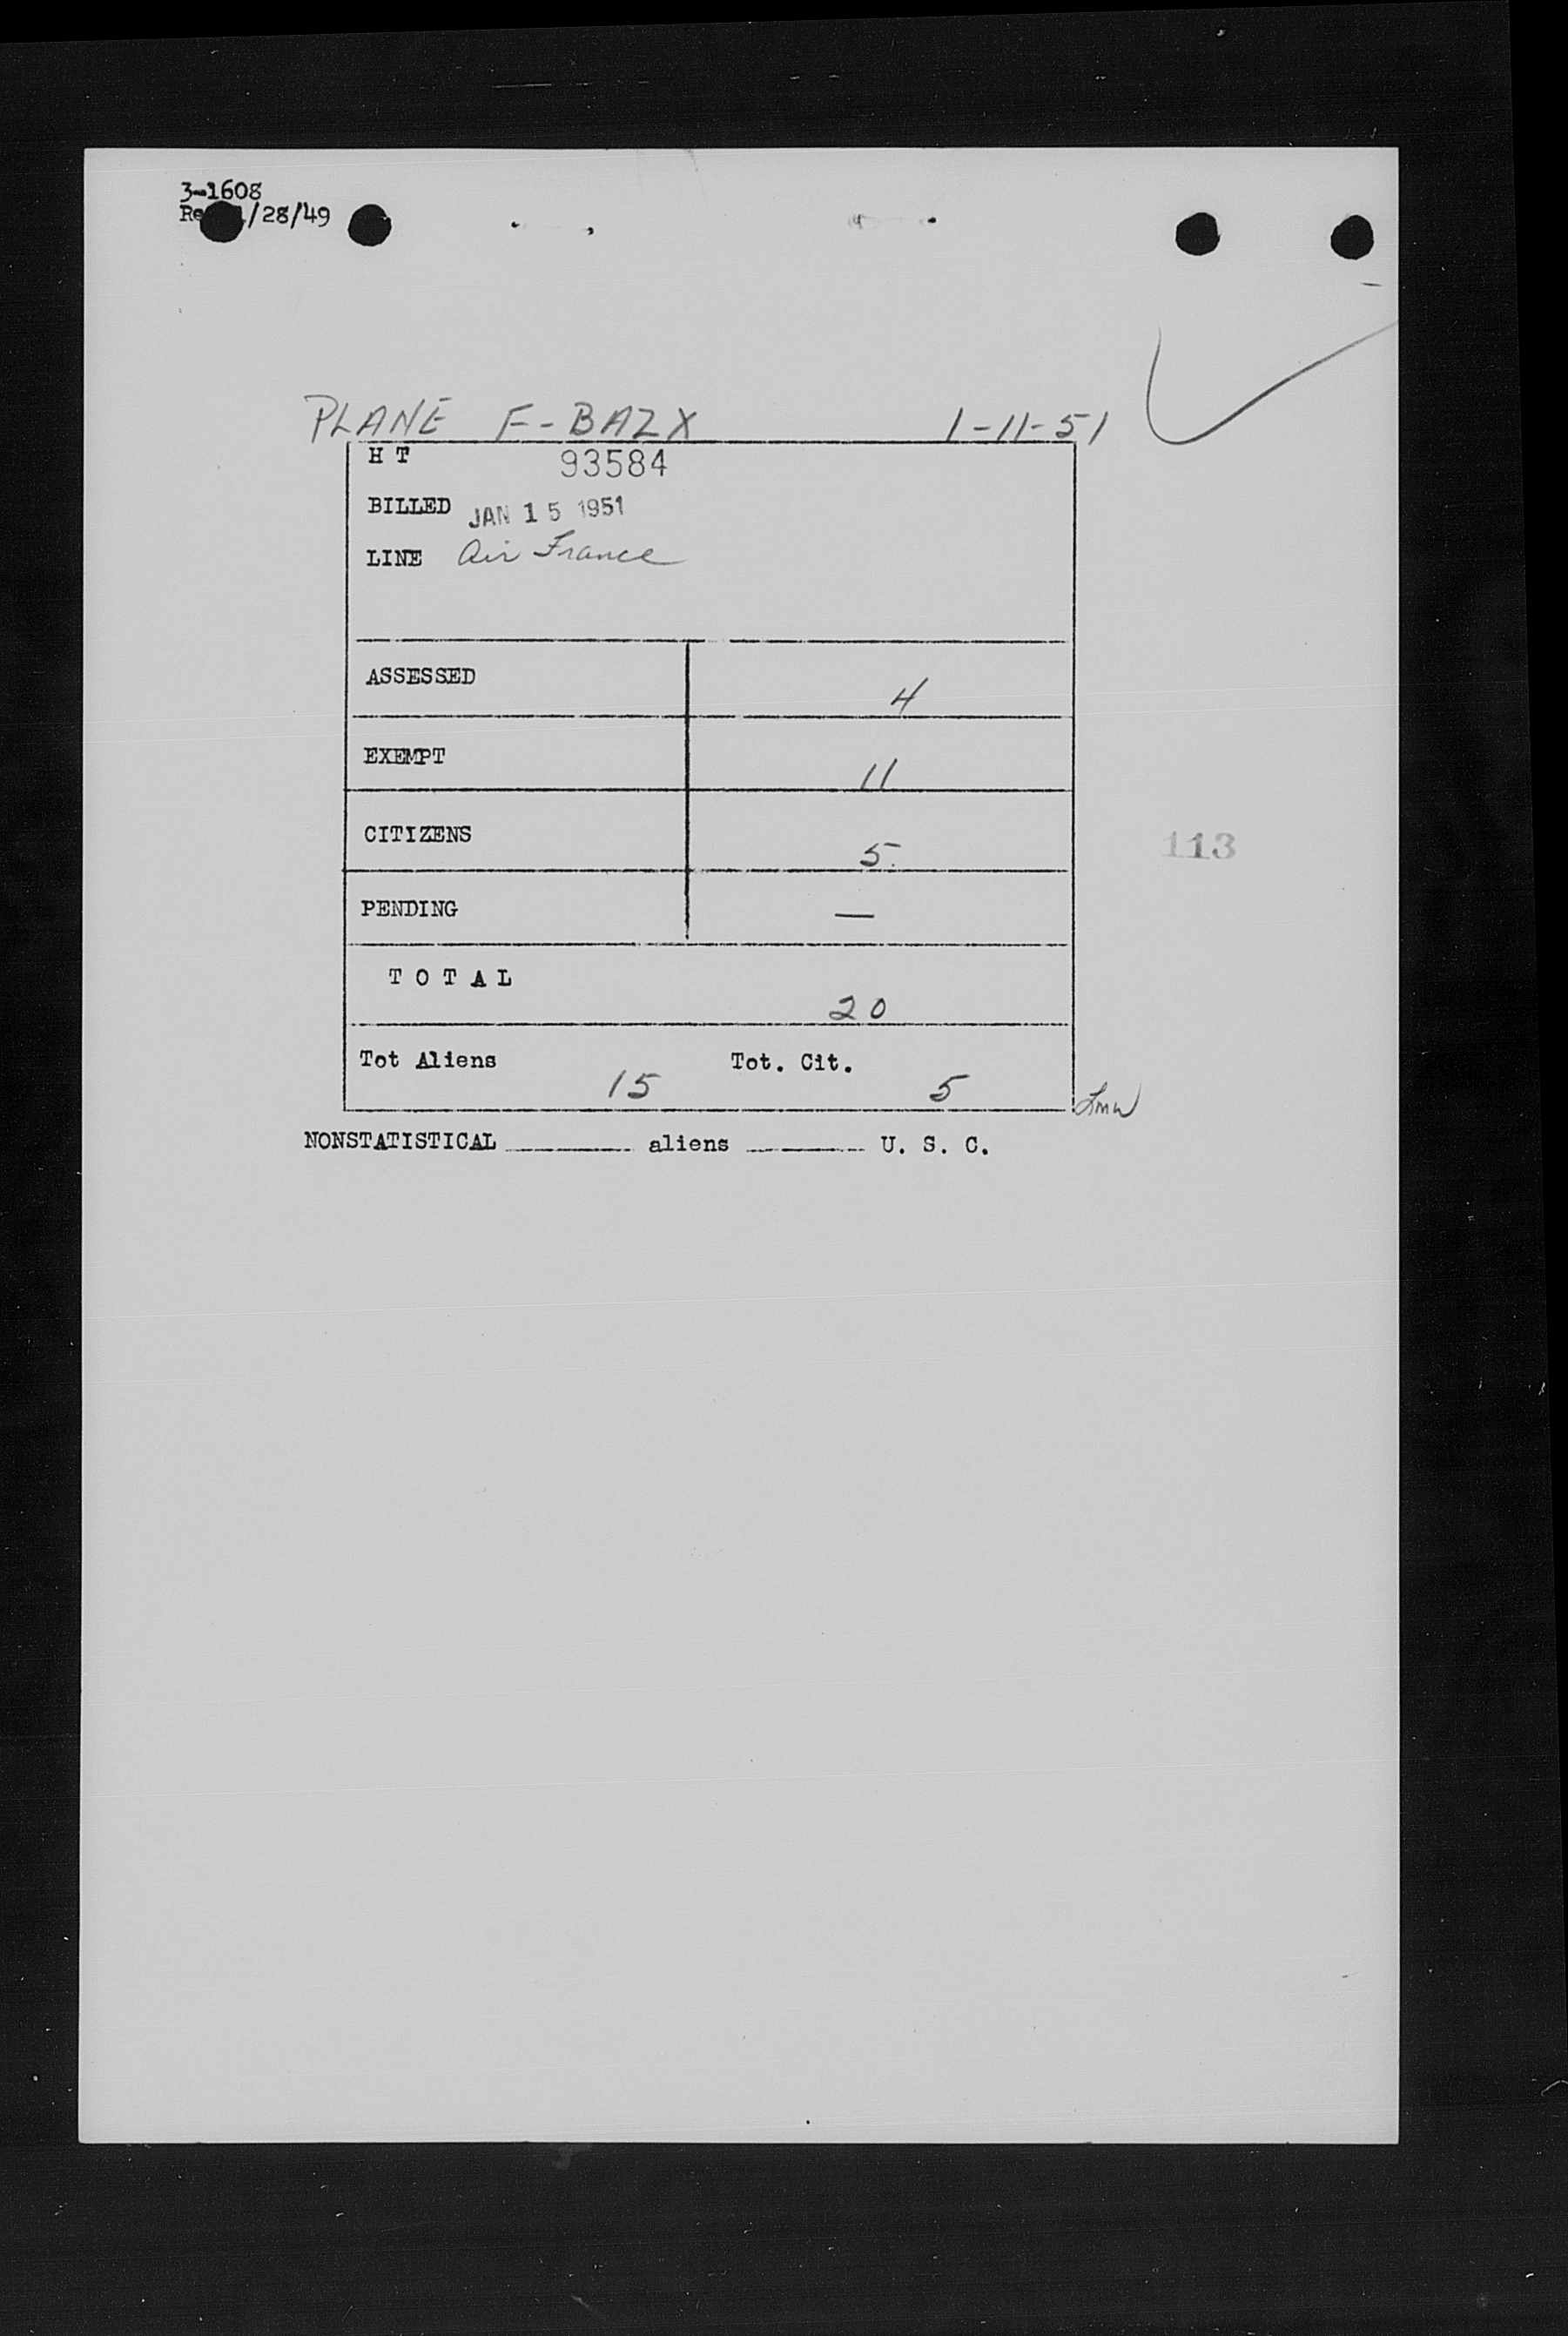 3-1608
/28/49
PLANE F-BAZX 1-11-51
H T 93584
BILLED JAN 15 1951
LINE Air France
ASSESSED 4
EXEMPT 11
CITIZENS 5
113
PENDING —
T O T A L 20
Tot Aliens 15 Tot. Cit. 5
Lmw
NONSTATISTICAL ________ aliens ________ U. S. C.